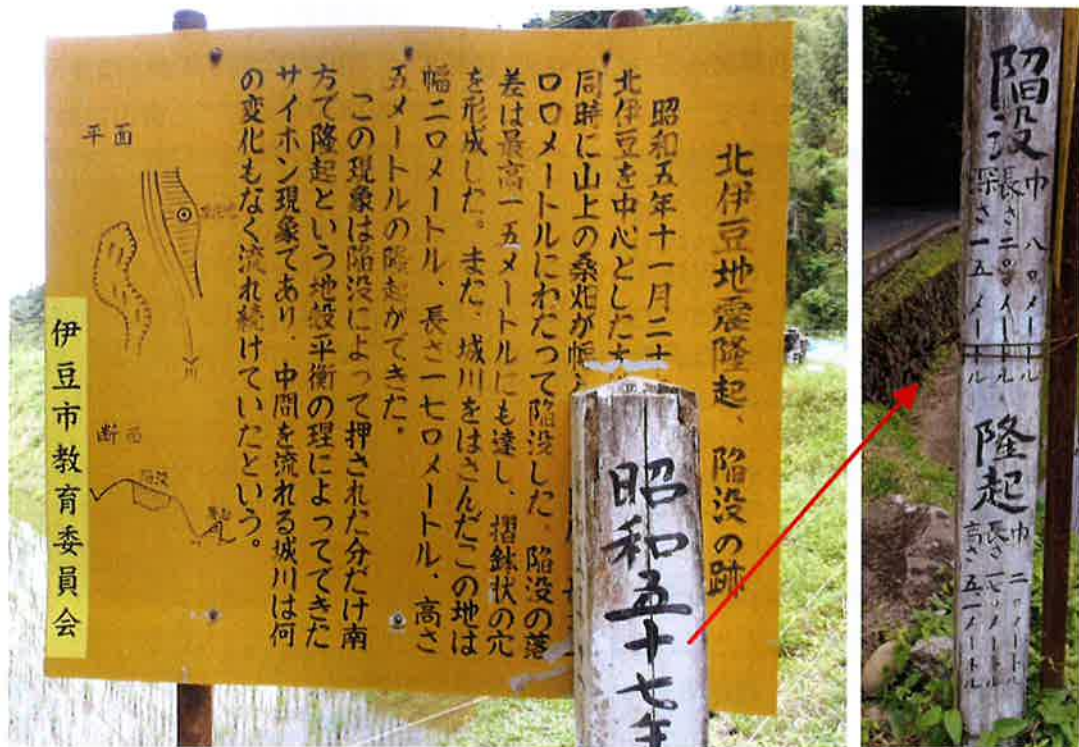 北伊豆地震隆起、陥没の跡
昭和五年十一月二十
北伊豆を中心とした
同時に山上の桑畑が幅
〇〇メートルにわたって陥没した。陥没の落
差は最高一五メートルにも達し、摺鉢状の穴
を形成した。また、城川をはさんだこの地は
幅二〇メートル、長さ一七〇メートル、高さ
五メートルの隆起ができた。
この現象は陥没によって押された分だけ南
方で隆起という地殻平衡の理によってできた
サイホン現象であり、中間を流れる城川は何
の変化もなく流れ続けていたという。
平面
川
断面
陥没
隆起
伊豆市教育委員会
昭和五十七年
陥没
巾 八〇メートル
長さ二〇〇メートル
深さ一五メートル
隆起
巾 二〇メートル
長さ一七〇メートル
高さ 五メートル